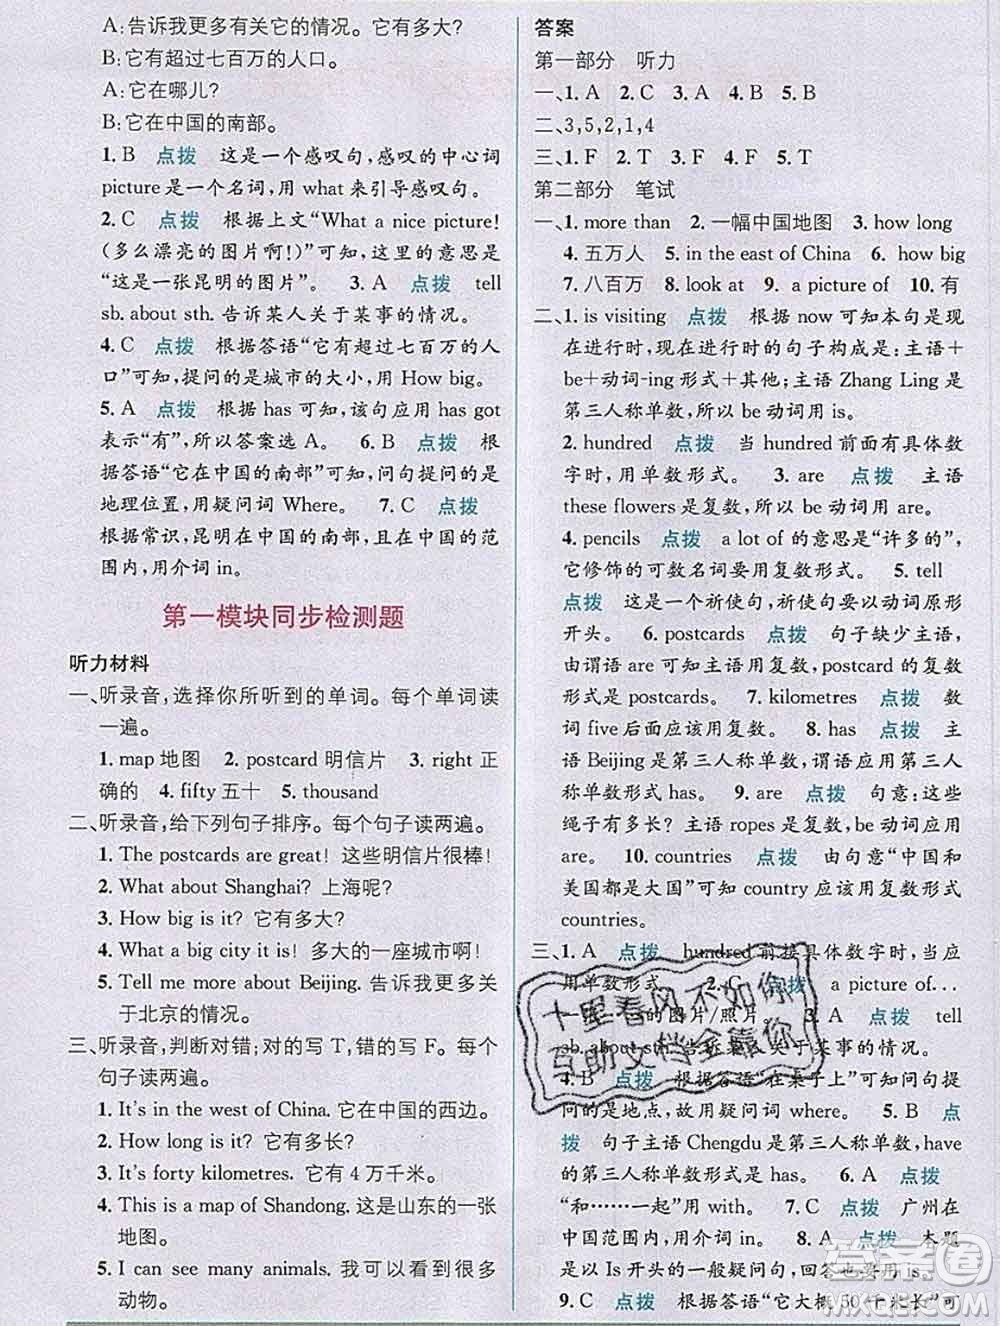 A:告诉我更多有关它的情况。它有多大?
B:它有超过七百万的人口。
A:它在哪儿?
B:它在中国的南部。
1. B 点拨 这是一个感叹句,感叹的中心词
picture是一个名词,用 what来引导感叹句。
2. C 点拨 根据上文“What a nice picture!
(多么漂亮的图片啊!)”可知,这里的意思是
“这是一张昆明的图片”。 3. A 点拨 tell
sb. about sth. 告诉某人关于某事的情况。
4. C 点拨 根据答语“它有超过七百万的人
口”可知,提问的是城市的大小,用 How big。
5. A 点拨 根据 has 可知,该句应用 has got
表示“有”,所以答案选 A。 6. B 点拨 根
据答语“它在中国的南部”可知,问句提问的是
地理位置,用疑问词 Where。 7. C 点拨
根据常识,昆明在中国的南部,且在中国的范
围内,用介词 in。
第一模块同步检测题
听力材料
一、听录音,选择你所听到的单词。每个单词读
一遍。
1. map地图 2. postcard明信片 3. right 正
确的 4. fifty五十 5. thousand
二、听录音,给下列句子排序。每个句子读两遍。
1. The postcards are great! 这些明信片很棒!
2. What about Shanghai? 上海呢?
3. How big is it? 它有多大?
4. What a big city it is! 多大的一座城市啊!
5. Tell me more about Beijing. 告诉我更多关
于北京的情况。
三、听录音,判断对错;对的写 T,错的写 F。每个
句子读两遍。
1. It's in the west of China. 它在中国的西边。
2. How long is it? 它有多长?
3. It's forty kilometres. 它有 4 万千米。
4. This is a map of Shandong. 这是山东的一张
地图。
5. I can see many animals. 我可以看到很多
动物。
答案
第一部分 听力
一、1. A 2. C 3. A 4. B 5. B
二、3,5,2,1,4
三、1. F 2. T 3. F 4. F 5. T
第二部分 笔试
一、1. more than 2. 一幅中国地图 3. how long
4. 五万人 5. in the east of China 6. how big
7. 八百万 8. look at 9. a picture of 10. 有
二、1. is visiting 点拨 根据 now 可知本句是现
在进行时,现在进行时的句子构成是:主语+
be+动词-ing 形式+其他;主语 Zhang Ling 是
第三人称单数,所以 be 动词用 is。
2. hundred 点拨 当 hundred 前面有具体数
字时,用单数形式。 3. are 点拨 主语
these flowers 是复数,所以 be动词用 are。
4. pencils 点拨 a lot of 的意思是“许多的”,
它修饰的可数名词要用复数形式。 5. tell
点拨 这是一个祈使句,祈使句要以动词原形
开头。 6. postcards 点拨 句子缺少主语,
由谓语 are 可知主语用复数,postcard 的复数
形式是 postcards。 7. kilometres 点拨 数
词 five 后面应该用复数。 8. has 点拨 主
语 Beijing 是第三人称单数,谓语应用第三人
称单数形式 has。 9. are 点拨 句意:这些
绳子有多长? 主语 ropes 是复数,be 动词应用
are。 10. countries 点拨 由句意“中国和
美国都是大国”可知 country 应该用复数形式
countries。
三、1. A 点拨 hundred 前接具体数字时,当应
用单数形式。 2. C 点拨 a picture of...
一……的图片/照片。 3. A 点拨 tell
sb. about sth. 告诉某人关于某事的情况。
4. B 点拨 根据答语“在桌子上”可知问句提
问的是地点,故用疑问词 where。 5. B 点
拨 句子主语 Chengdu 是第三人称单数,have
的第三人称单数形式是 has。 6. A 点拨
“和……一起”用 with。 7. C 点拨 广州在
中国范围内,用介词 in。 8. A 点拨 本题
是以 Is 开头的一般疑问句,回答也要用 is。
9. C 点拨 根据答语“它大概 50 千米长”可
十里春风不如你
互助文档全靠你
答案圈